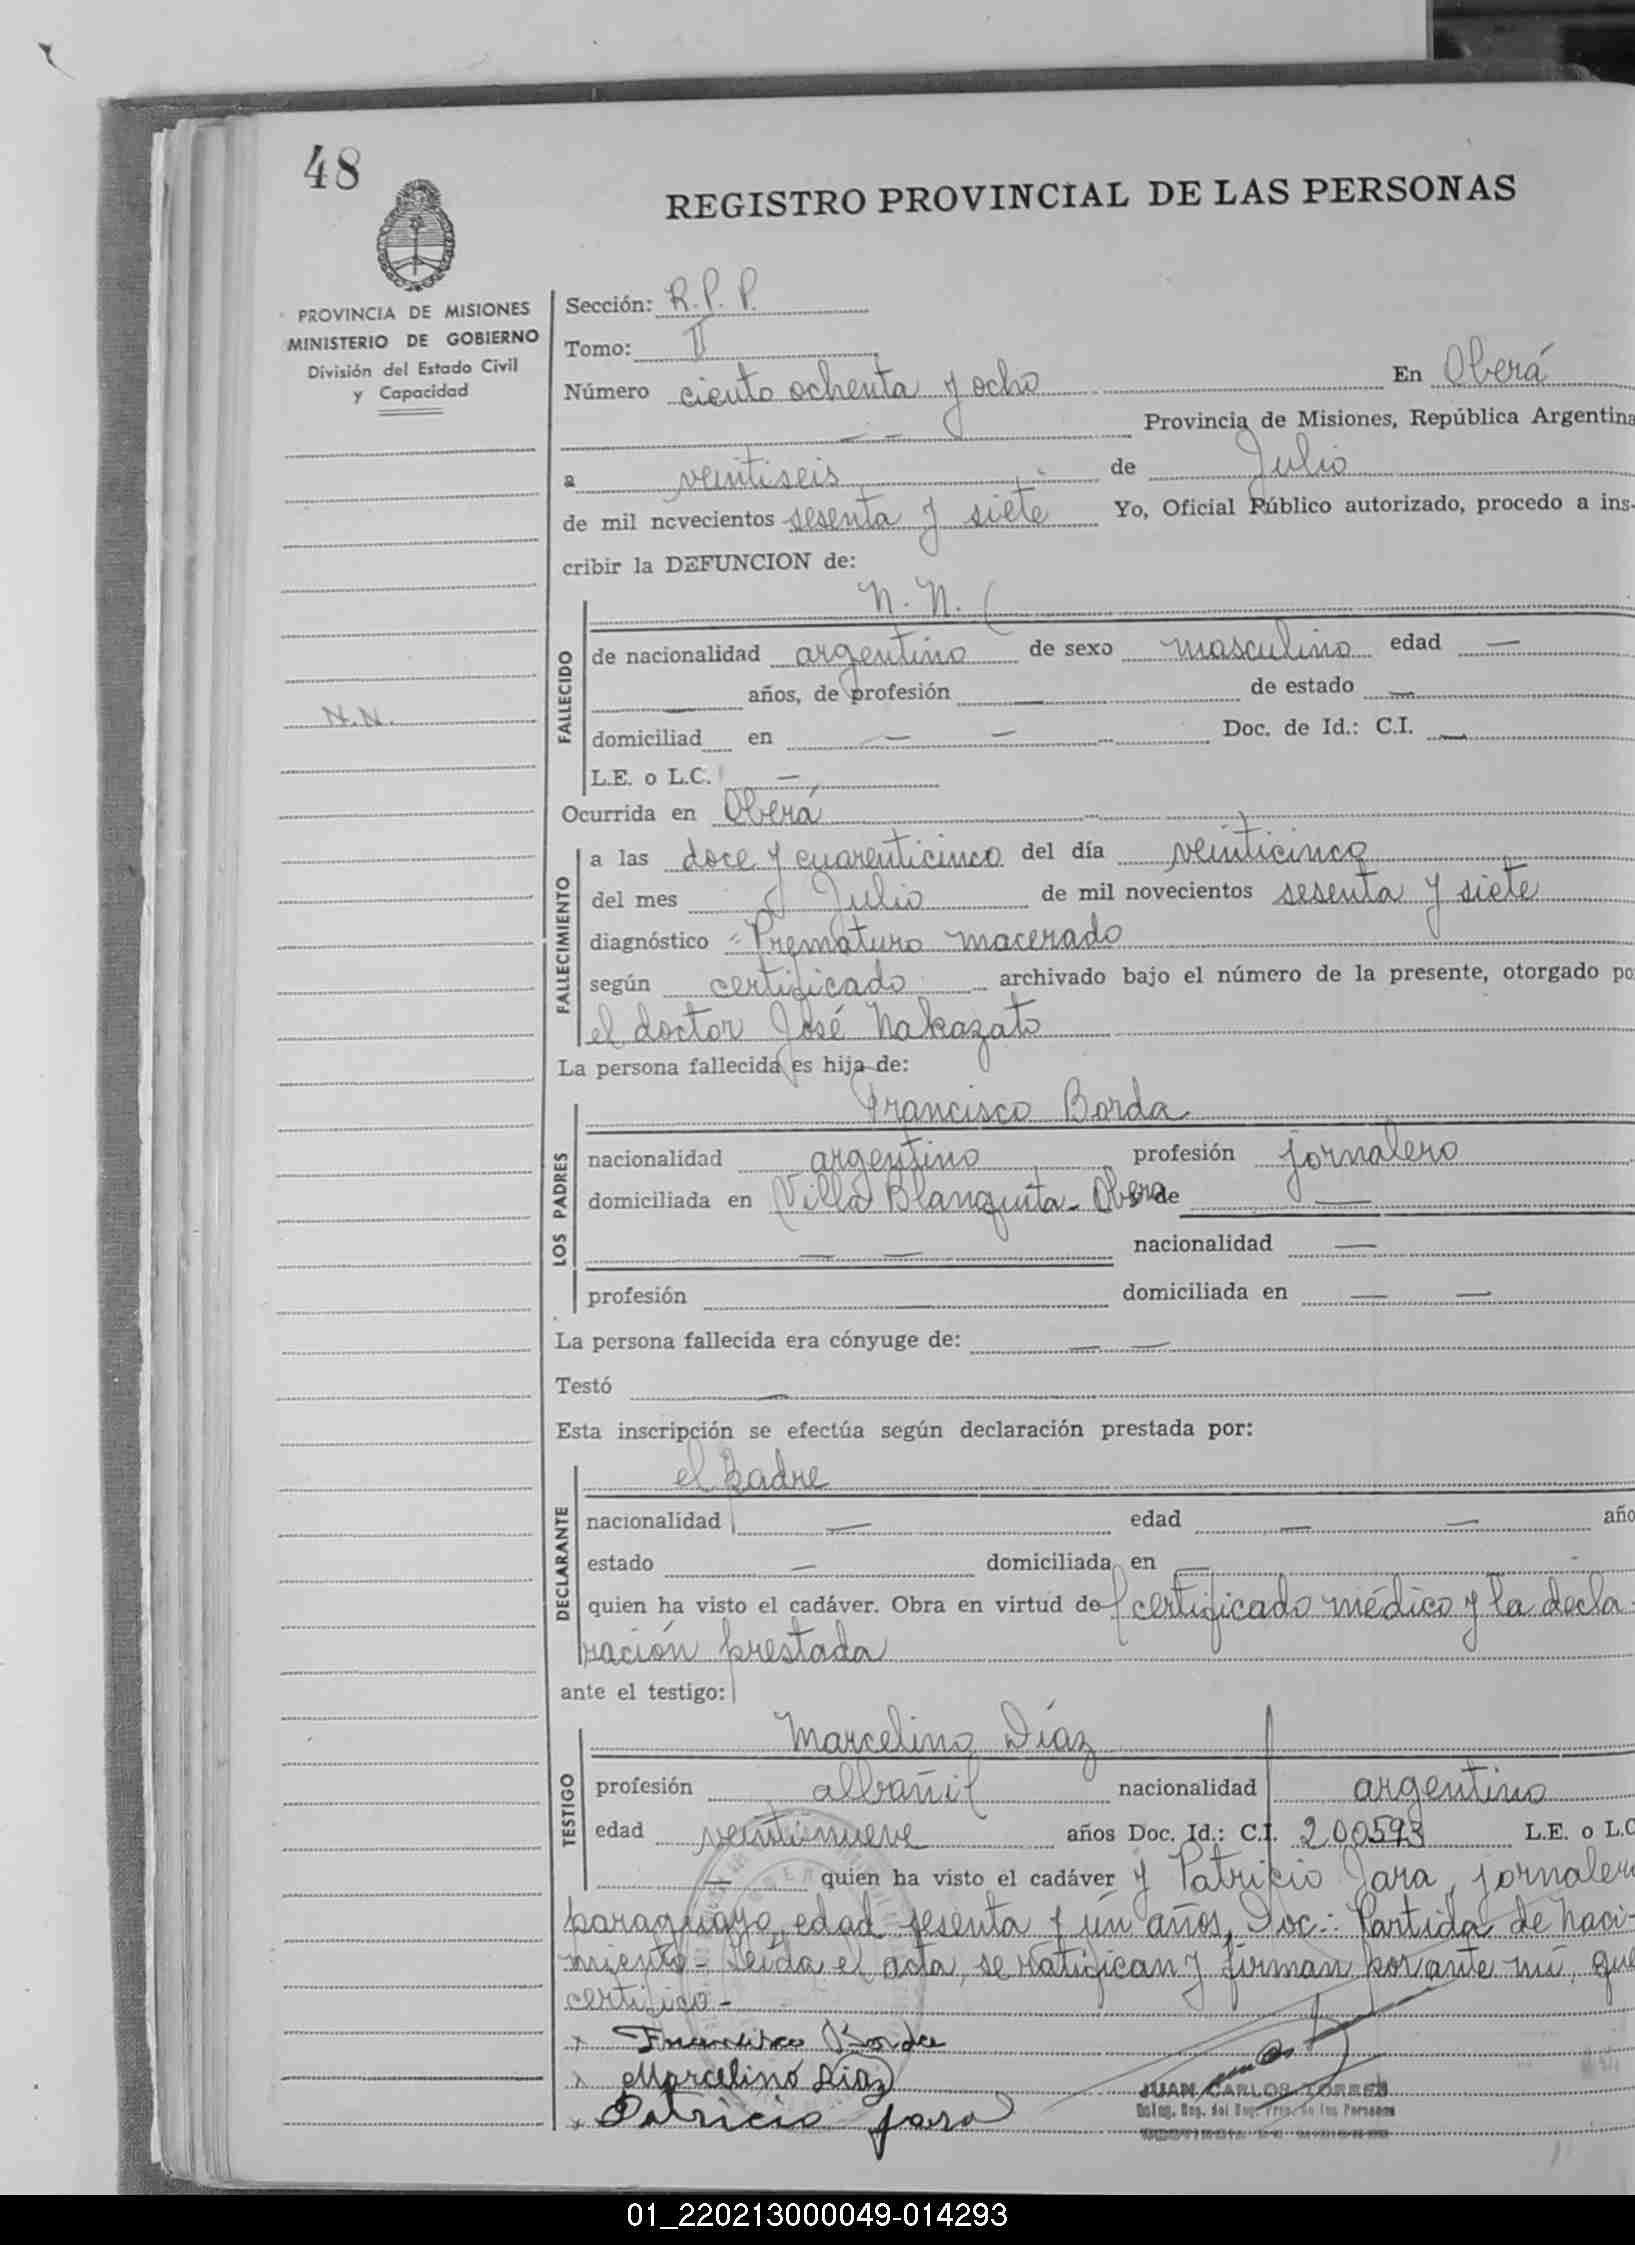 48
REGISTRO PROVINCIAL DE LAS PERSONAS
PROVINCIA DE MISIONES
MINISTERIO DE GOBIERNO
División del Estado Civil
y Capacidad
N.N.
Sección: R.P.P.
Tomo: II
Número ciento ochenta y ocho En Oberá
Provincia de Misiones, República Argentina
a veintiseis de Julio
de mil novecientos sesenta y siete Yo, Oficial Público autorizado, procedo a ins-
cribir la DEFUNCION de:
N.N.
FALLECIDO
de nacionalidad argentino de sexo masculino edad —
— años, de profesión — de estado —
domiciliad en — — Doc. de Id.: C.I. —
L.E. o L.C. —
Ocurrida en Oberá
FALLECIMIENTO
a las doce y cuarenticinco del día veinticinco
del mes Julio de mil novecientos sesenta y siete
diagnóstico Prematuro macerado
según certificado archivado bajo el número de la presente, otorgado po
el doctor José Nakazato
La persona fallecida es hija de:
LOS PADRES
Francisco Borda
nacionalidad argentino profesión jornalero
domiciliada en Villa Blanquita - Oberá de —
— — nacionalidad —
profesión — domiciliada en — —
La persona fallecida era cónyuge de: — —
Testó —
Esta inscripción se efectúa según declaración prestada por:
DECLARANTE
el padre
nacionalidad — edad — — año
estado — domiciliada en —
quien ha visto el cadáver. Obra en virtud de certificado médico y la decla-
ración prestada
ante el testigo:
TESTIGO
Marcelino Díaz
profesión albañil nacionalidad argentino
edad veintinueve años Doc. Id.: C.I. 200593 L.E. o L.C
— quien ha visto el cadáver y Patricio Jara, jornalero
paraguayo, edad sesenta y un años, Doc.: Partida de Naci-
miento - Leída el acta, se ratifican y firman por ante mí, que
certifico -
x Francisco Borda
x Marcelino Diaz
x Patricio jara
JUAN CARLOS TORRES
01_220213000049-014293